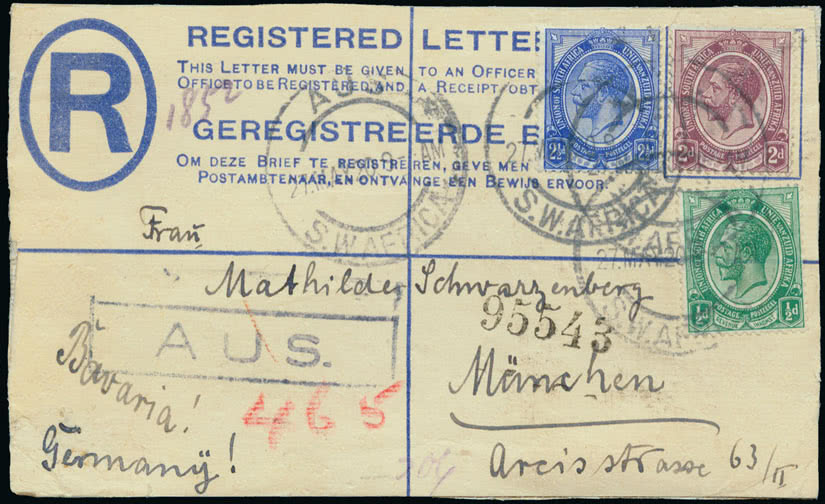 R
REGISTERED LETTE
THIS LETTER MUST BE GIVEN TO AN OFFICER
OFFICE TO BE REGISTERED, AND A RECEIPT OBT
1852
GEREGISTREERDE B
OM DEZE BRIEF TE REGISTREREN, GEVE MEN
POSTAMBTENAAR, EN ONTVANGE EEN BEWIJS ERVOOR.
AUS
S.W.AFRICA
S.W.AFRICA
UNION OF SOUTH AFRICA UNIE VAN ZUID AFRIKA
POSTAGE POSTZEGEL
2½ 2½d
UNION OF SOUTH AFRICA UNIE VAN ZUID AFRIKA
POSTAGE POSTZEGEL
2d 2d
UNION OF SOUTH AFRICA UNIE VAN ZUID AFRIKA
POSTAGE POSTZEGEL
½d ½d
Frau
Mathilde Schwarzenberg
95543
AUS.
Bavaria!
465
München
Germany!
Arcisstrasse 63/II